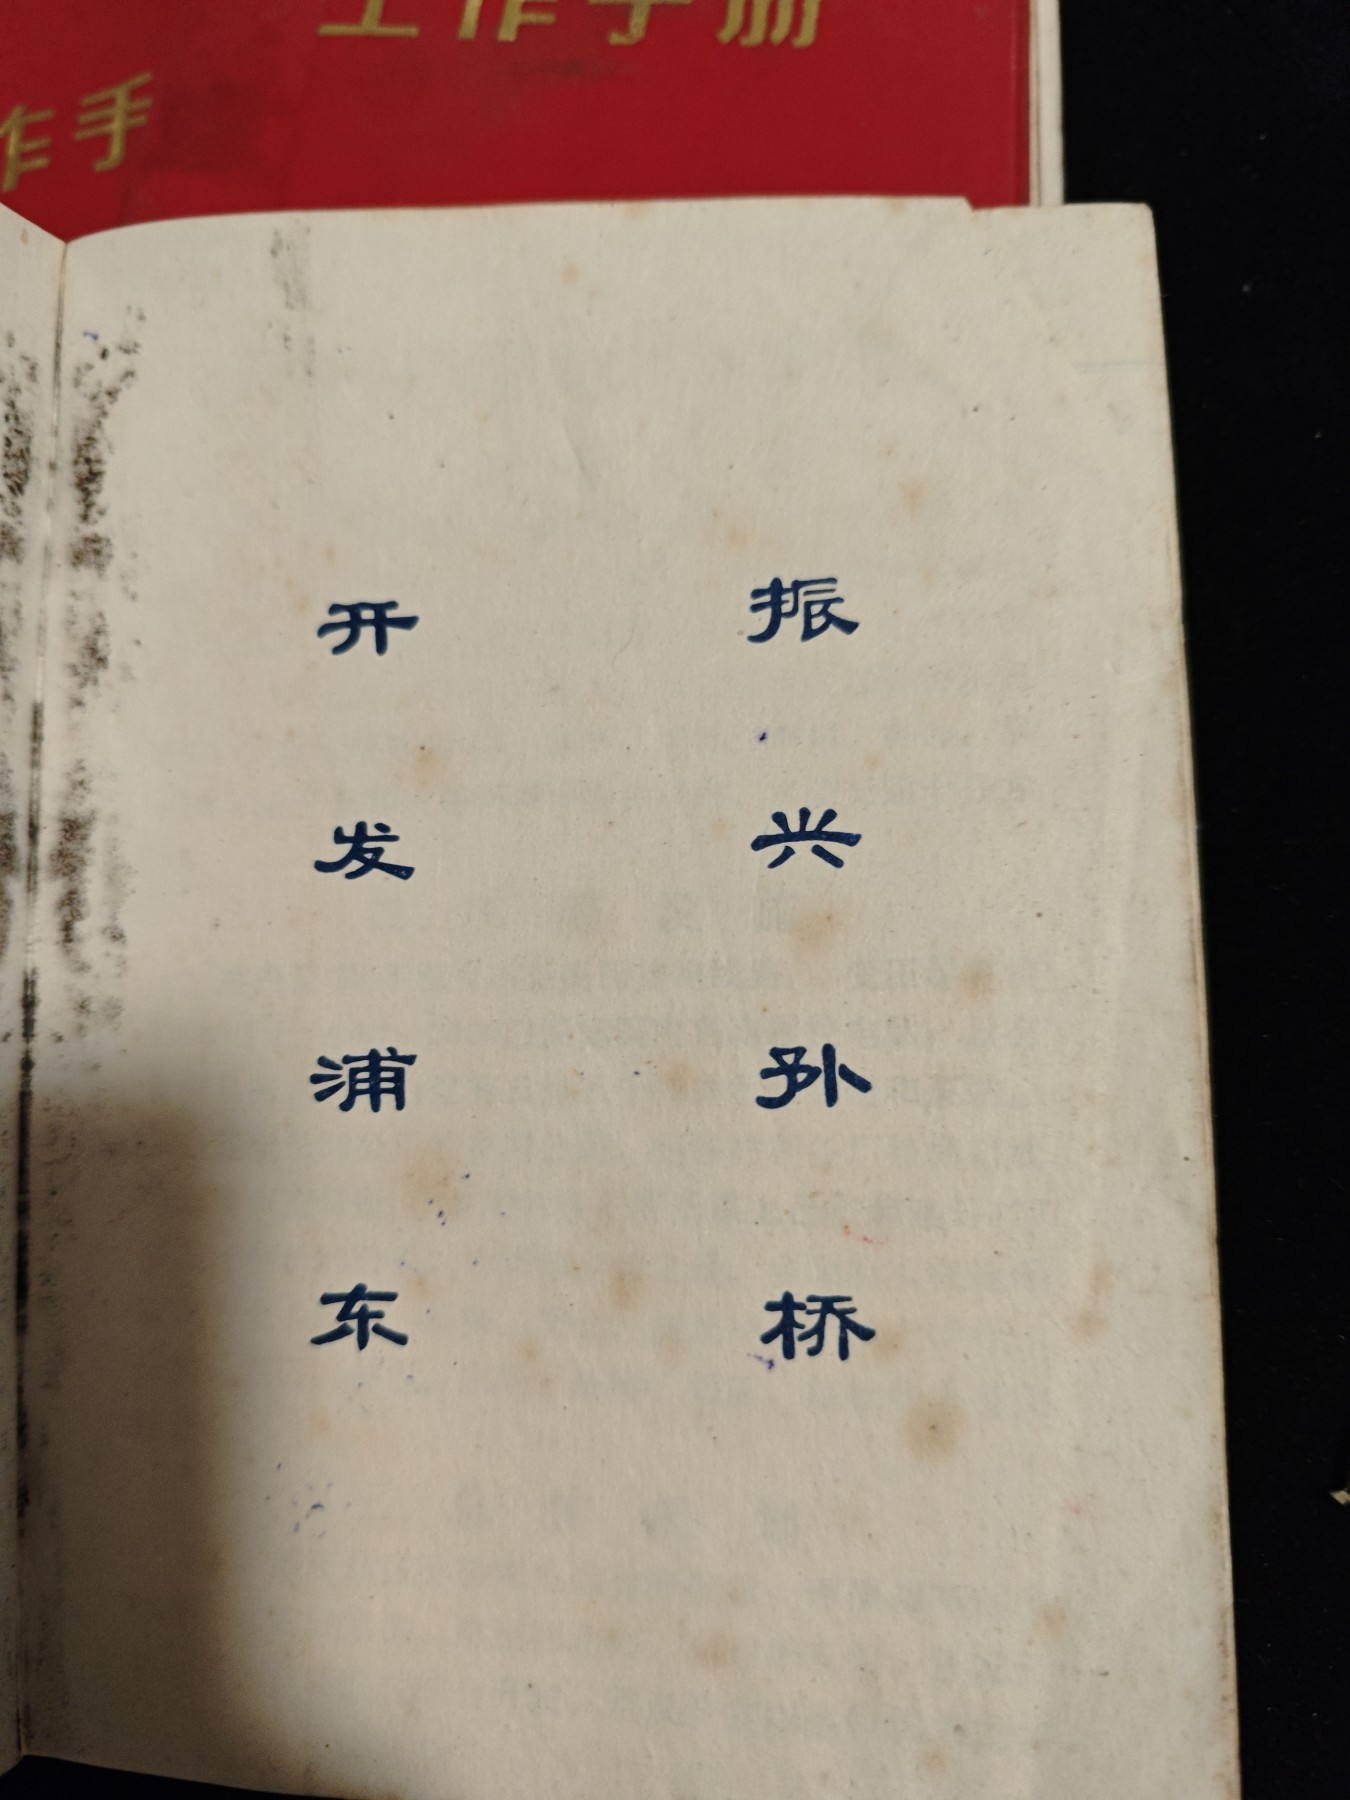 工作手册
作手
振兴孙桥
开发浦东